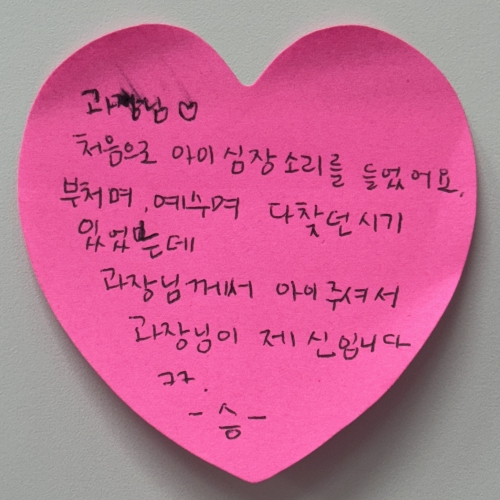 과장님♡
처음으로 아이 심장소리를 들었어요.
부처며, 예수며 다찾던시기
있었는데
과장님께서 아이주셔서
과장님이 제 신입니다
ㅋㅋ.
- 승 -